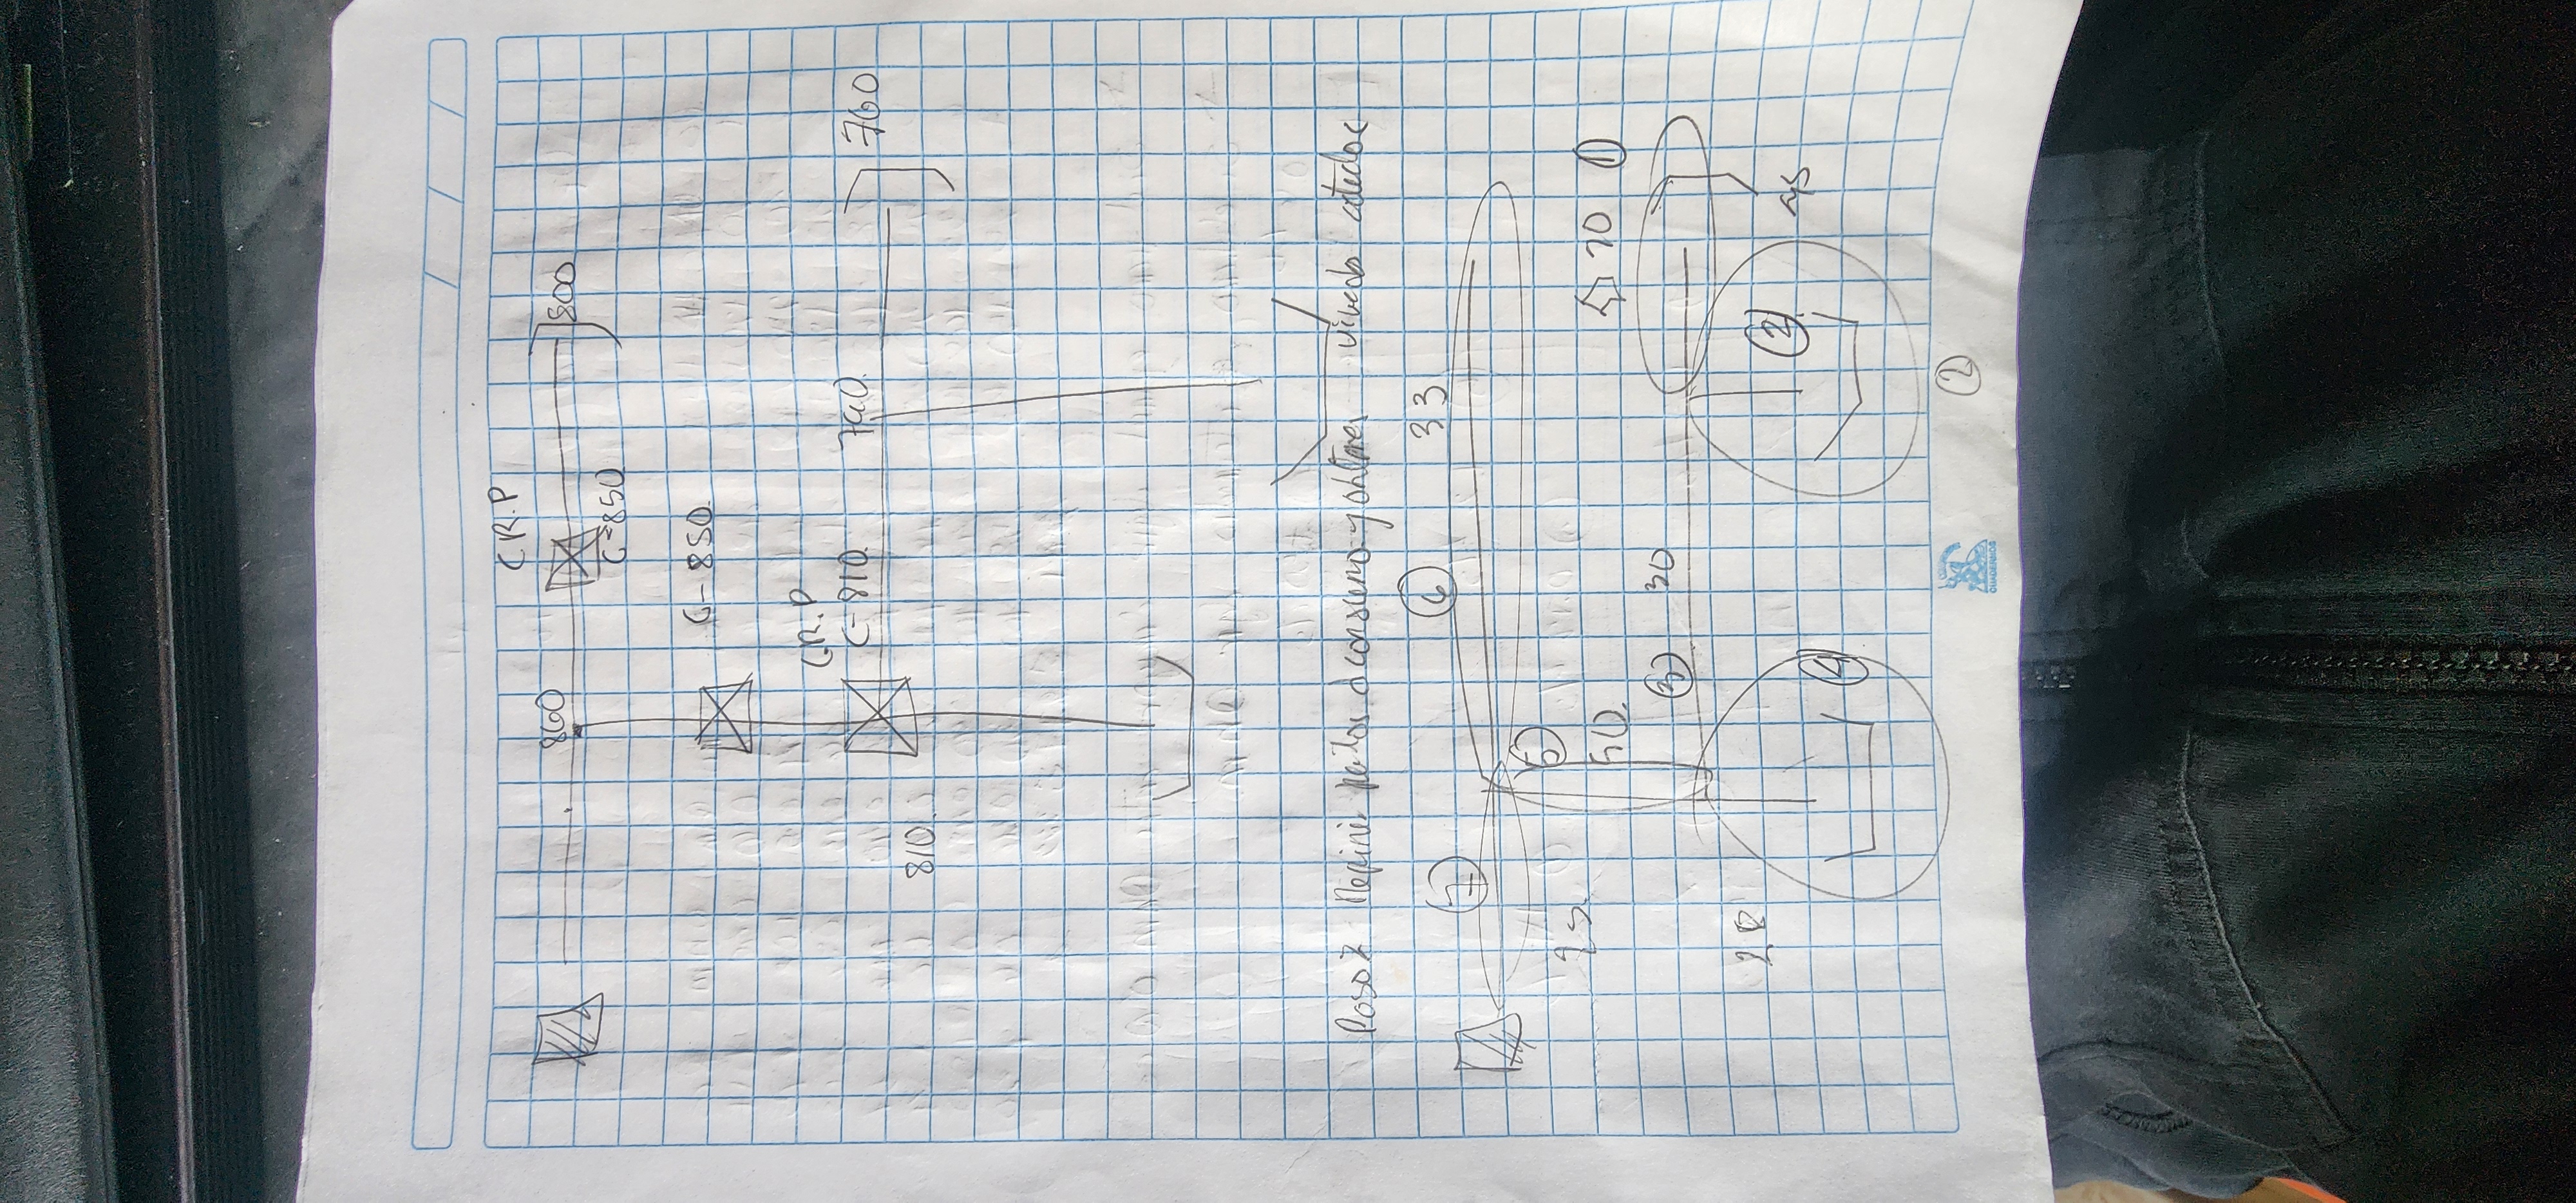 C.R.P
860
800
C=850
C-850
C.R.P
C-810
790
760
810
Paso 2 Definir puntos d consumo y obtener vivienda
6
33
7
5
50.
70
1
3
30
28
2
4
2
CUADERNOS